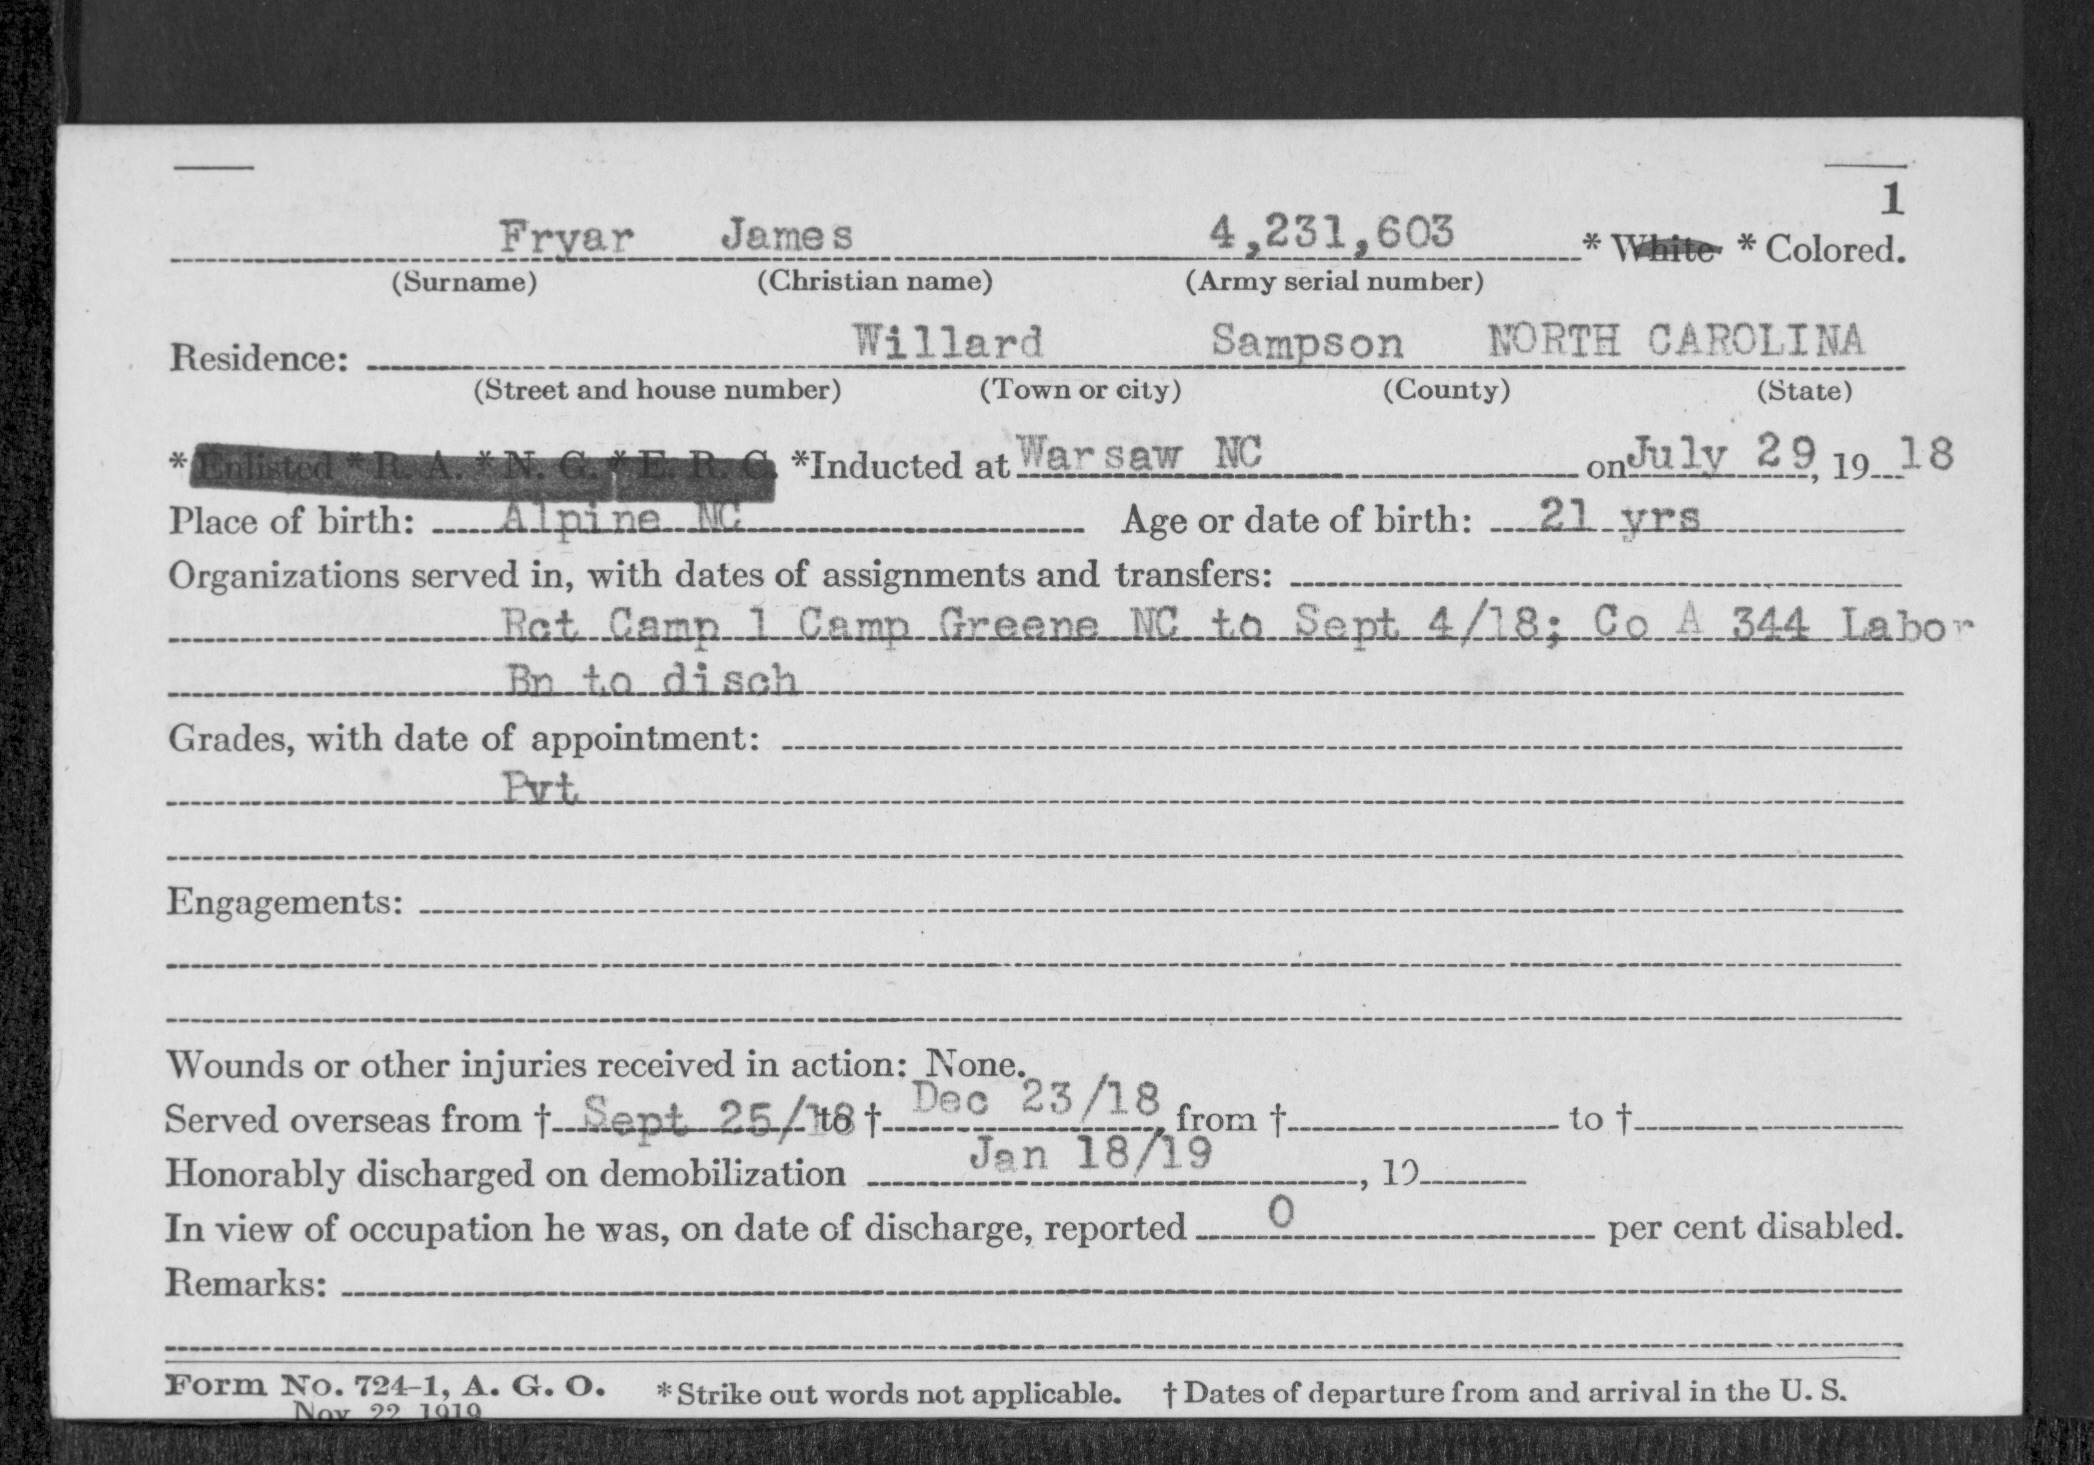 1
Fryar James 4,231,603 * White * Colored.
(Surname) (Christian name) (Army serial number)
Residence: Willard Sampson NORTH CAROLINA
(Street and house number) (Town or city) (County) (State)
* Enlisted * R. A. * N. G. * E. R. C. *Inducted at Warsaw NC on July 29, 19 18
Place of birth: Alpine NC Age or date of birth: 21 yrs
Organizations served in, with dates of assignments and transfers:
Rct Camp 1 Camp Greene NC to Sept 4/18; Co A 344 Labor
Bn to disch
Grades, with date of appointment:
Pvt
Engagements:
Wounds or other injuries received in action: None.
Served overseas from † Sept 25/18 to † Dec 23/18, from † to †
Honorably discharged on demobilization Jan 18/19, 19
In view of occupation he was, on date of discharge, reported 0 per cent disabled.
Remarks:
Form No. 724-1, A. G. O. * Strike out words not applicable. † Dates of departure from and arrival in the U. S.
Nov 22 1919